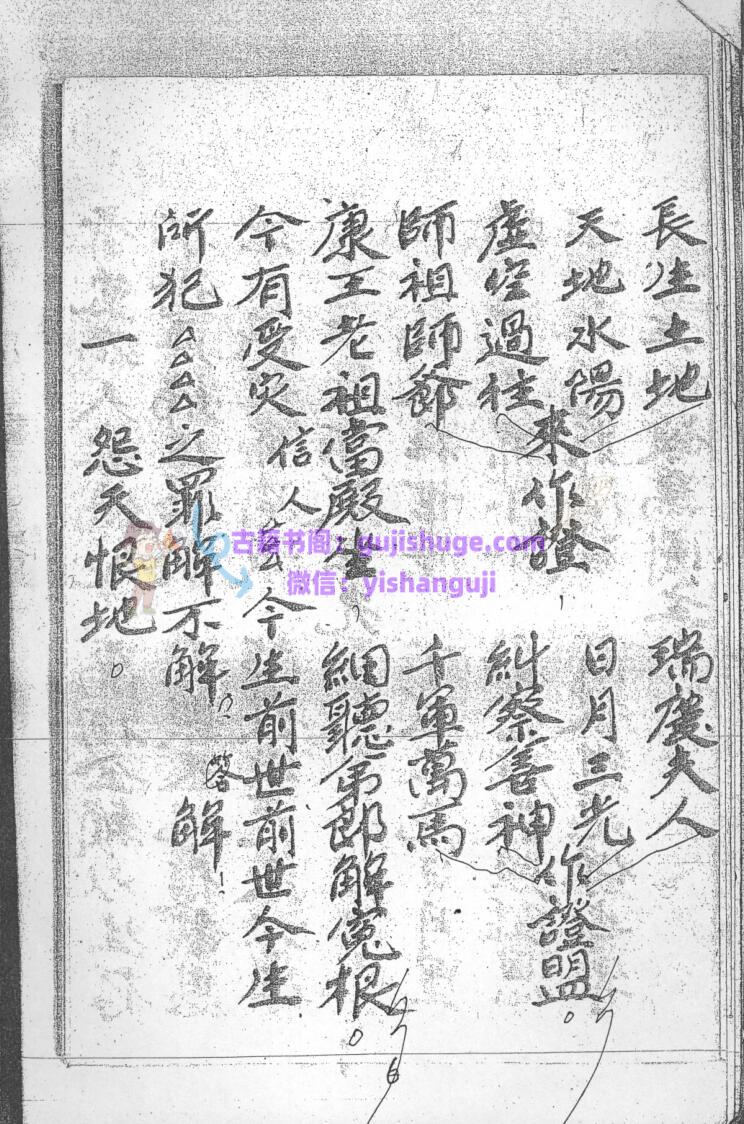 長生土地 瑞慶夫人
天地水陽 日月三光
虛空過往 糾察善神
來作證, 作證盟。
師祖師爺 千軍萬馬
康王老祖當殿坐, 細聽弟郎解冤根。
今有受灾信人△△今生前世前世今生
所犯△△△△之罪解不解?答解!
一 怨天恨地。
6
古籍书阁:gujishuge.com
微信:yishanguji